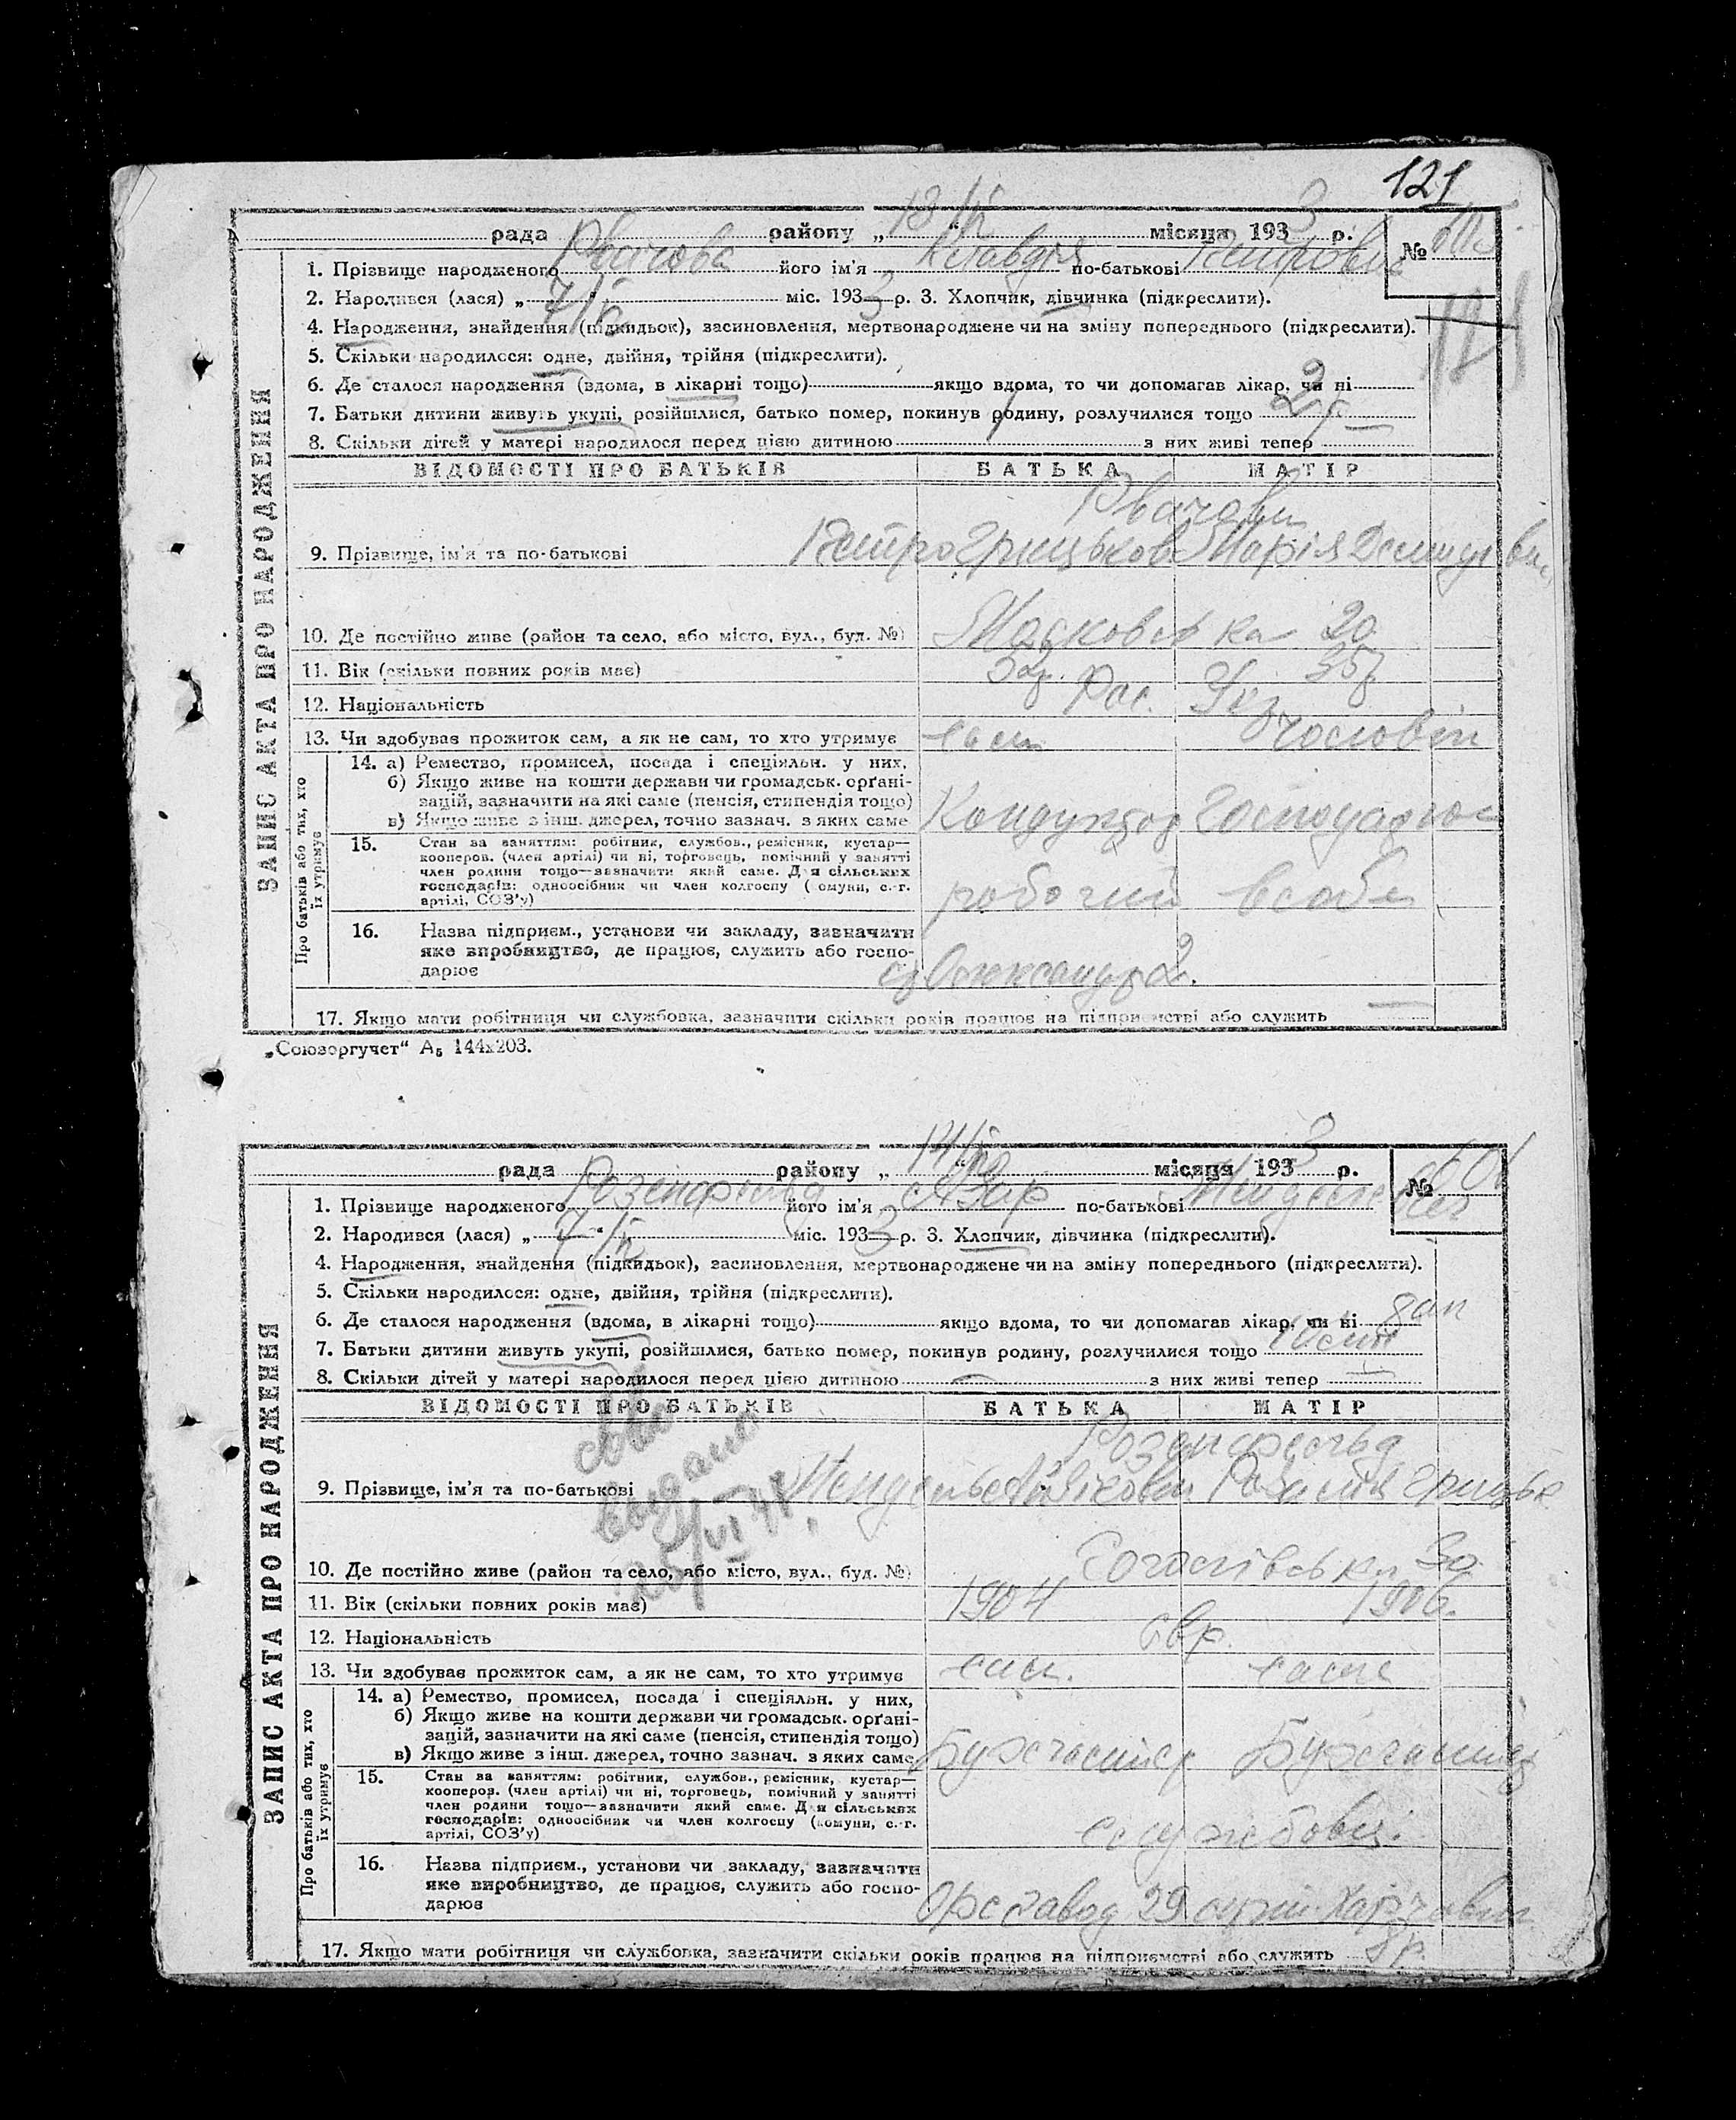 121
рада району „ 13 “ місяця 1933 р. №
ЗАПИС АКТА ПРО НАРОДЖЕННЯ
1. Прізвище народженого Рвачова його ім'я Клавдія по-батькові Петровна
2. Народився (лася) „ 7 “ міс. 1933 р. 3. Хлопчик, дівчинка (підкреслити).
4. Народження, знайдення (підкидьок), засиновлення, мертвонароджене чи на зміну попереднього (підкреслити).
5. Скільки народилося: одне, двійня, трійня (підкреслити).
6. Де сталося народження (вдома, в лікарні тощо) якщо вдома, то чи допомагав лікар, чи ні
7. Батьки дитини живуть укупі, розійшлися, батько помер, покинув родину, розлучилися тощо 2
8. Скільки дітей у матері народилося перед цією дитиною з них живі тепер
ВІДОМОСТІ ПРО БАТЬКІВ БАТЬКА МАТІР
Рвачови
9. Прізвище, ім'я та по-батькові Петро Грицьков. Марія
10. Де постійно живе (район та село, або місто, вул., буд. №) 20
11. Вік (скільки повних років має) 35р
12. Національність Рос. Укр
13. Чи здобуває прожиток сам, а як не сам, то хто утримує сам чоловік
Про батьків або тих, хто їх утримує
14. а) Ремество, промисел, посада і спеціяльн. у них,
б) Якщо живе на кошти держави чи громадськ. орґані-
зацій, зазначити на які саме (пенсія, стипендія тощо)
в) Якщо живе з інш. джерел, точно зазнач. з яких саме Кондуктор Господарює
15. Стан за заняттям: робітник, службов., ремісник, кустар—
кооперов. (член артілі) чи ні, торговець, помічний у занятті
член родини тощо—зазначити який саме. Для сільських
господарів: одноосібник чи член колгоспу (комуни, с.-г.
артілі, СОЗ'у) робочий в себе
16. Назва підприєм., установи чи закладу, зазначити
яке виробництво, де працює, служить або госпо-
дарює
17. Якщо мати робітниця чи службовка, зазначити скільки років працює на підприємстві або служить
„Союзоргучет“ А5 144х203.
рада району „ 14 “ місяця 1933 р. №
ЗАПИС АКТА ПРО НАРОДЖЕННЯ
1. Прізвище народженого Розенфельд його ім'я по-батькові
2. Народився (лася) „ 7 “ міс. 1933 р. 3. Хлопчик, дівчинка (підкреслити).
4. Народження, знайдення (підкидьок), засиновлення, мертвонароджене чи на зміну попереднього (підкреслити).
5. Скільки народилося: одне, двійня, трійня (підкреслити).
6. Де сталося народження (вдома, в лікарні тощо) якщо вдома, то чи допомагав лікар, чи ні
7. Батьки дитини живуть укупі, розійшлися, батько помер, покинув родину, розлучилися тощо
8. Скільки дітей у матері народилося перед цією дитиною — з них живі тепер —
ВІДОМОСТІ ПРО БАТЬКІВ БАТЬКА МАТІР
Розенфельд
9. Прізвище, ім'я та по-батькові
выдано
25/VI 41
10. Де постійно живе (район та село, або місто, вул., буд. №) 30
11. Вік (скільки повних років має) 1904 1906.
12. Національність Євр.
13. Чи здобуває прожиток сам, а як не сам, то хто утримує сам. сама
Про батьків або тих, хто їх утримує
14. а) Ремество, промисел, посада і спеціяльн. у них,
б) Якщо живе на кошти держави чи громадськ. орґані-
зацій, зазначити на які саме (пенсія, стипендія тощо)
в) Якщо живе з інш. джерел, точно зазнач. з яких саме Бухгалтер Бухгалтер
15. Стан за заняттям: робітник, службов., ремісник, кустар—
кооперов. (член артілі) чи ні, торговець, помічний у занятті
член родини тощо—зазначити який саме. Для сільських
господарів: одноосібник чи член колгоспу (комуни, с.-г.
артілі, СОЗ'у) службовці.
16. Назва підприєм., установи чи закладу, зазначити
яке виробництво, де працює, служить або госпо-
дарює завод 29
17. Якщо мати робітниця чи службовка, зазначити скільки років працює на підприємстві або служить 8 р.